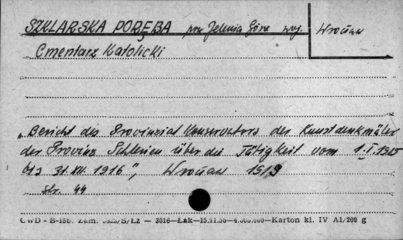 SZKLARSKA PORĘBA pow Jelenia Góra woj. Wrocław
Cmentarz Katolicki
„Bericht des Provinzial Konservators der Kunstdenkmäler
der Provinz Schlesien über die Tätigkeit vom 1.I.1915
bis 31.XII.1916", Wrocław
str. 44
CWD - B-156. Zam. Łż — 3016—Łak—15.11.50—4.000.000—Karton kl. IV A1/200 g